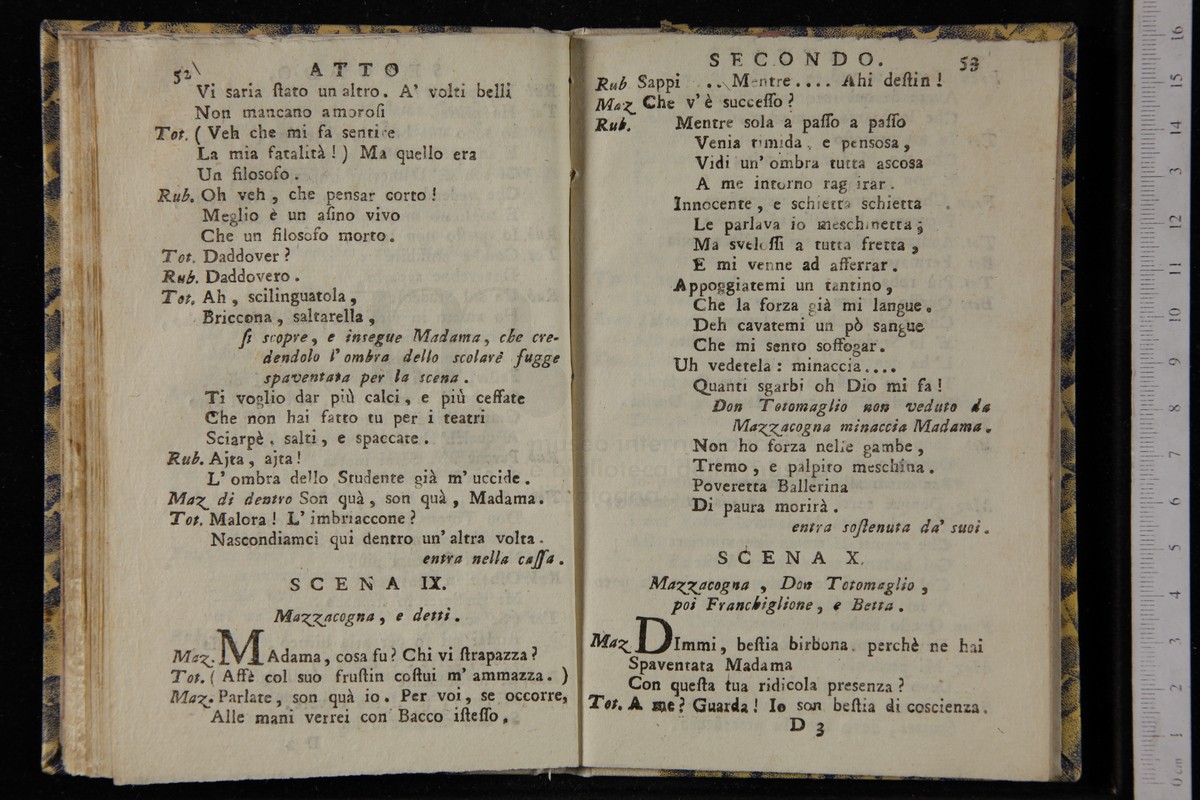 52
ATTO
Vi saria ſtato un altro. A' volti belli
Non mancano amoroſi
Tot. ( Veh che mi fa sentire
La mia fatalità ! ) Ma quello era
Un filosofo.
Rub. Oh veh, che pensar corto !
Meglio è un aſino vivo
Che un filosofo morto.
Tot. Daddover ?
Rub. Daddovero.
Tot. Ah, scilinguatola,
Briccona, saltarella,
ſi scopre, e insegue Madama, che cre-
dendolo l' ombra dello scolare fugge
spaventata per la scena.
Ti voglio dar più calci, e più ceffate
Che non hai fatto tu per i teatri
Sciarpè, salti, e spaccate.
Rub. Ajta, ajta !
L' ombra dello Studente già m' uccide.
Maz. di dentro Son quà, son quà, Madama.
Tot. Malora ! L' imbriaccone ?
Nascondiamci qui dentro un' altra volta.
entra nella caſſa.
SCENA IX.
Mazzacogna, e detti.
Maz. MAdama, cosa fu ? Chi vi ſtrapazza ?
Tot. ( Affè col suo fruſtin coſtui m' ammazza. )
Maz. Parlate, son quà io. Per voi, se occorre,
Alle mani verrei con Bacco iſteſſo.
SECONDO.
53
Rub Sappi ... Mentre .... Ahi deſtin !
Maz Che v' è succeſſo ?
Rub. Mentre sola a paſſo a paſſo
Venia timida, e pensosa,
Vidi un' ombra tutta ascosa
A me intorno raggirar.
Innocente, e schietta schietta
Le parlava io meschinetta;
Ma sveloſſi a tutta fretta,
E mi venne ad afferrar.
Appoggiatemi un tantino,
Che la forza già mi langue.
Deh cavatemi un pò sangue
Che mi sento soffogar.
Uh vedetela : minaccia ....
Quanti sgarbi oh Dio mi fa !
Don Totomaglio non veduto da
Mazzacogna minaccia Madama.
Non ho forza nelle gambe,
Tremo, e palpito meschina.
Poveretta Ballerina
Di paura morirà.
entra soſtenuta da' suoi.
SCENA X.
Mazzacogna, Don Totomaglio,
poi Franchiglione, e Betta.
Maz DImmi, beſtia birbona. perchè ne hai
Spaventata Madama
Con queſta tua ridicola presenza ?
Tot. A me ? Guarda ! Io son beſtia di coscienza.
D 3